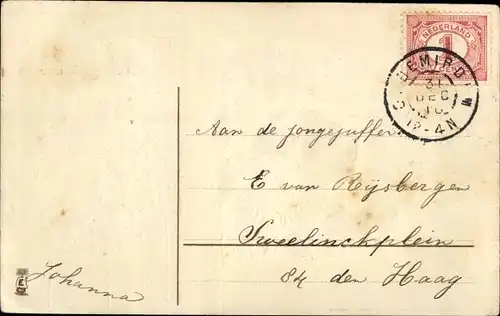 NEDERLAND
1
31
DEC
10
12-4N
Aan de jongejuffer
E van Reijsbergen
Sweelinckplein
84 den Haag
Johanna
E